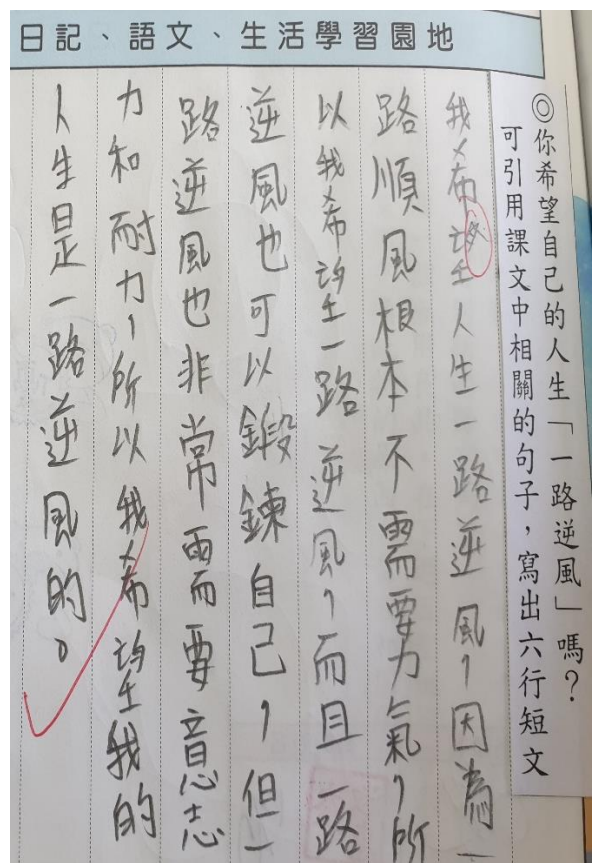 日記、語文、生活學習園地
◎你希望自己的人生「一路逆風」嗎?
可引用課文中相關的句子,寫出六行短文
我希望人生一路逆風,因為一
路順風根本不需要力氣,所
以我希望一路逆風,而且一路
逆風也可以鍛鍊自己,但一
路逆風也非常需要意志
力和耐力,所以我希望我的
人生是一路逆風的。